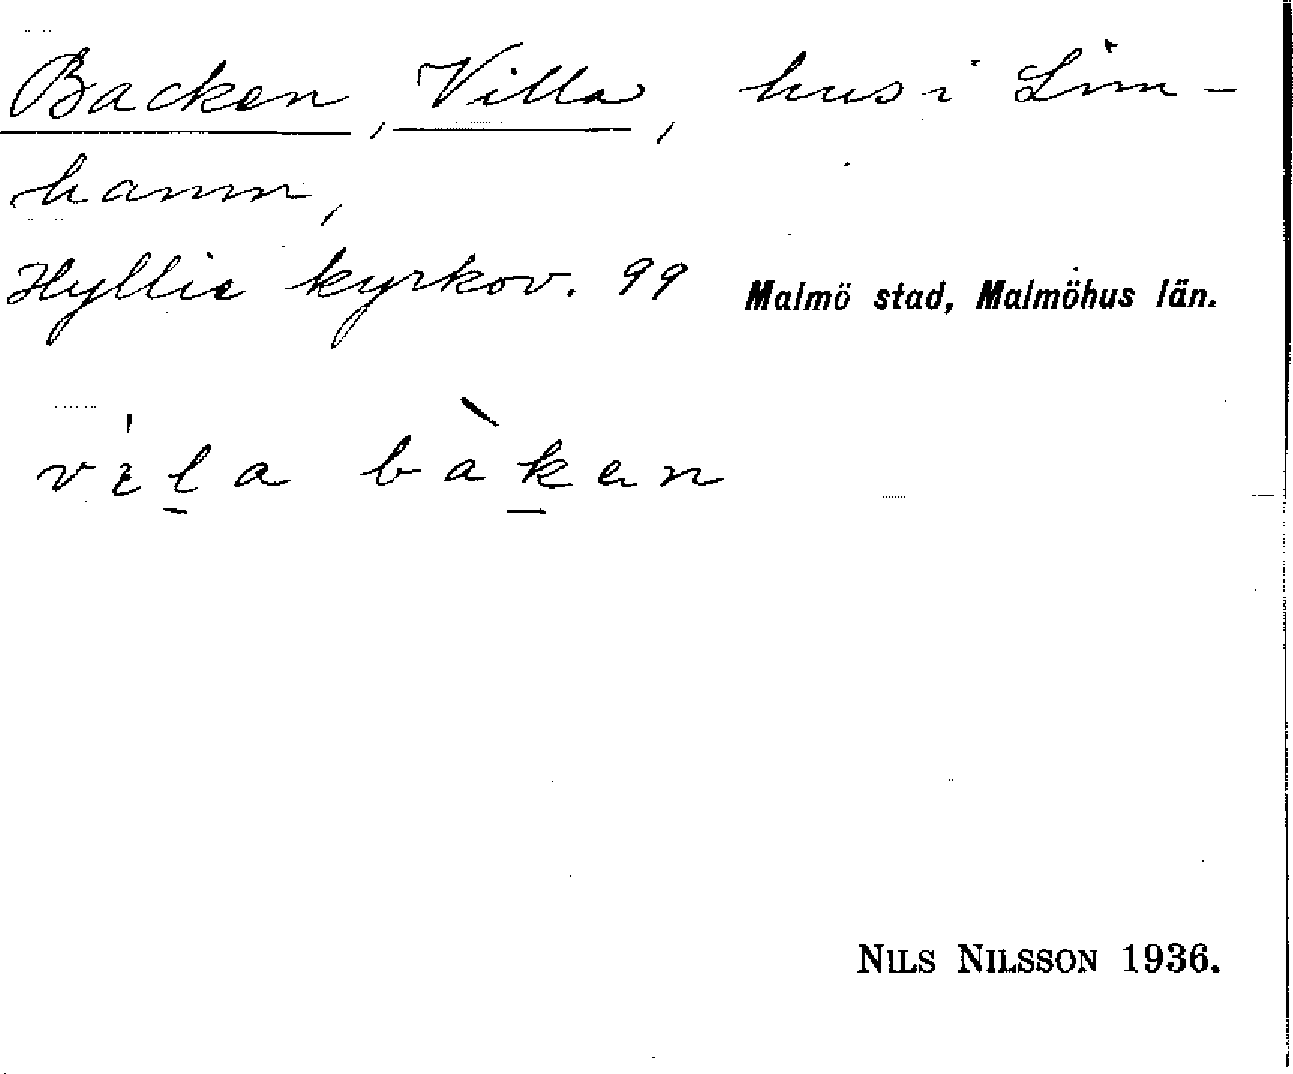 Backen, Villa, hus i Lim-
hamn,
Hyllie kyrkov. 99 Malmö stad, Malmöhus län.
vìla bàken
NILS NILSSON 1936.